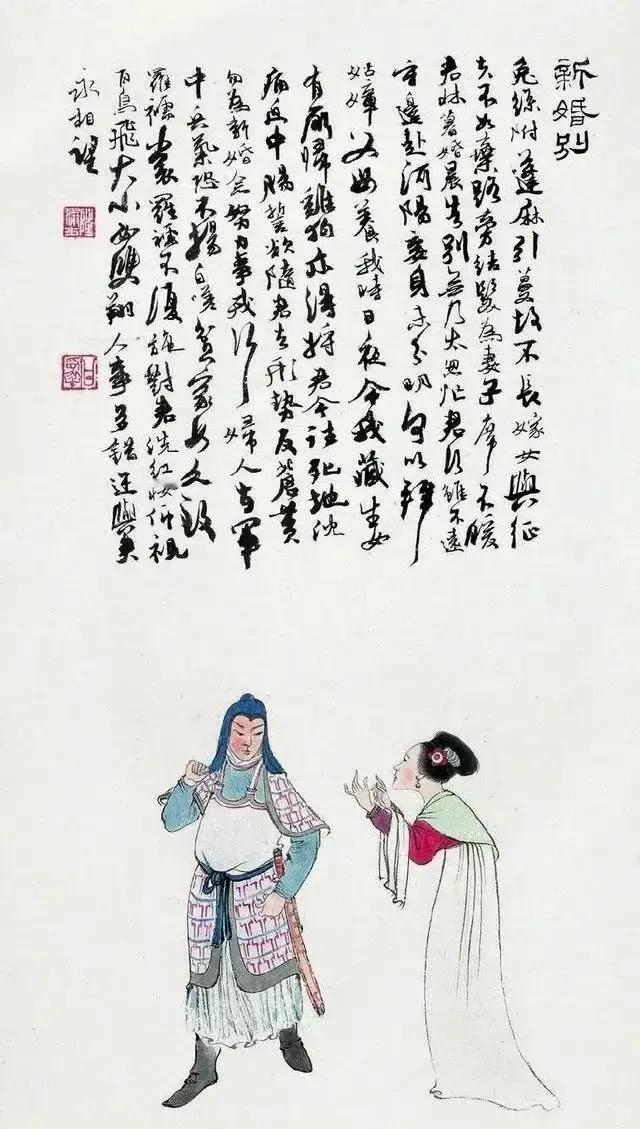 新婚別
兔絲附蓬麻引蔓故不長嫁女與征
夫不如棄路旁結髮為妻子席不暖
君牀暮婚晨告別無乃太怱忙君行雖不遠
守邊赴河陽妾身未分明何以拜
姑嫜父母養我時日夜令我藏生女
有所歸雞狗亦得將君今往死地沈
痛迫中腸誓欲隨君去形勢反蒼黃
勿為新婚念努力事戎行婦人在軍
中兵氣恐不揚自嗟貧家女久致
羅襦裳羅襦不復施對君洗紅妝仰視
百鳥飛大小必雙翔人事多錯迕與君
永相望